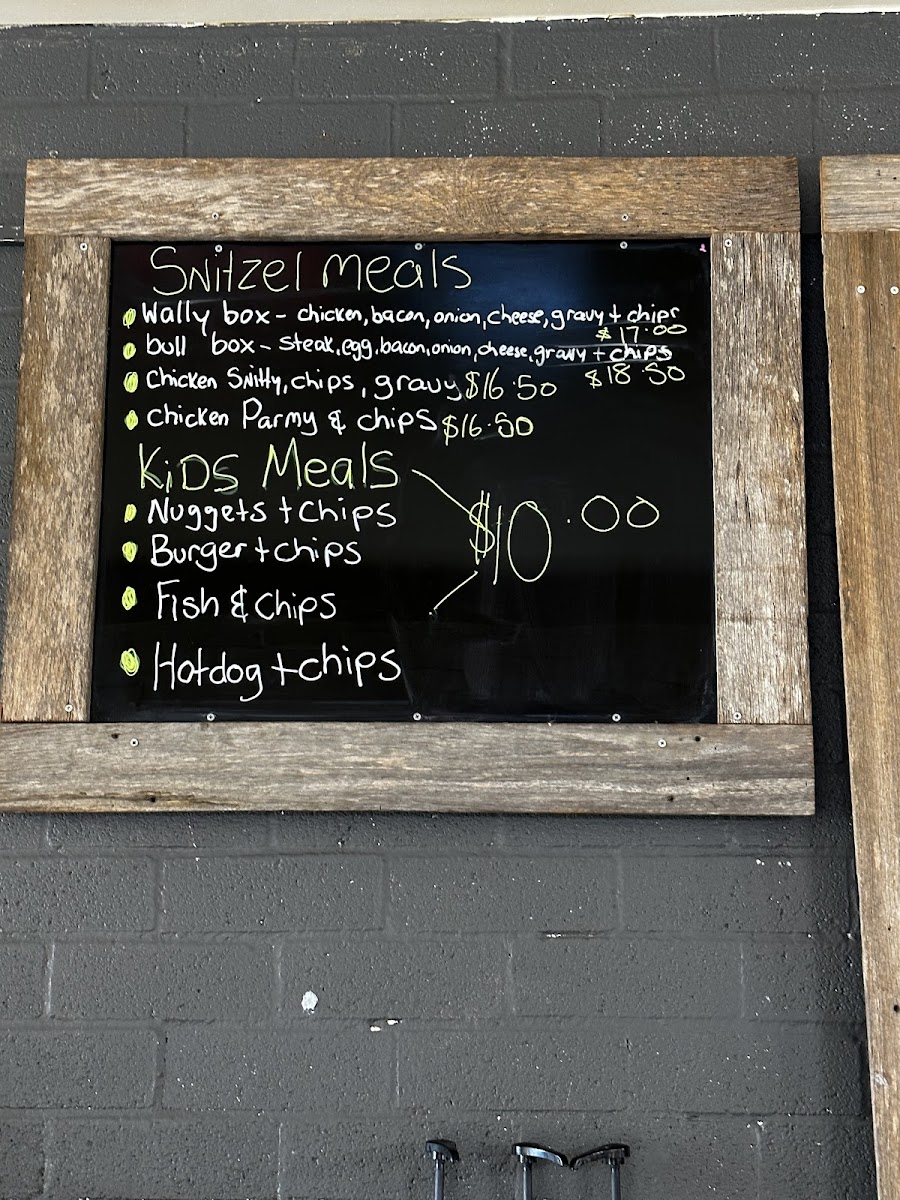 Snitzel meals
Wally box - chicken, bacon, onion, cheese, gravy + chips
$17.00
bull box - steak, egg, bacon, onion, cheese, gravy + chips
$18.50
Chicken Snitty, chips, gravy $16.50
Chicken Parmy & chips $16.50
KiDS Meals
$10.00
Nuggets + chips
Burger + chips
Fish & chips
Hotdog + chips